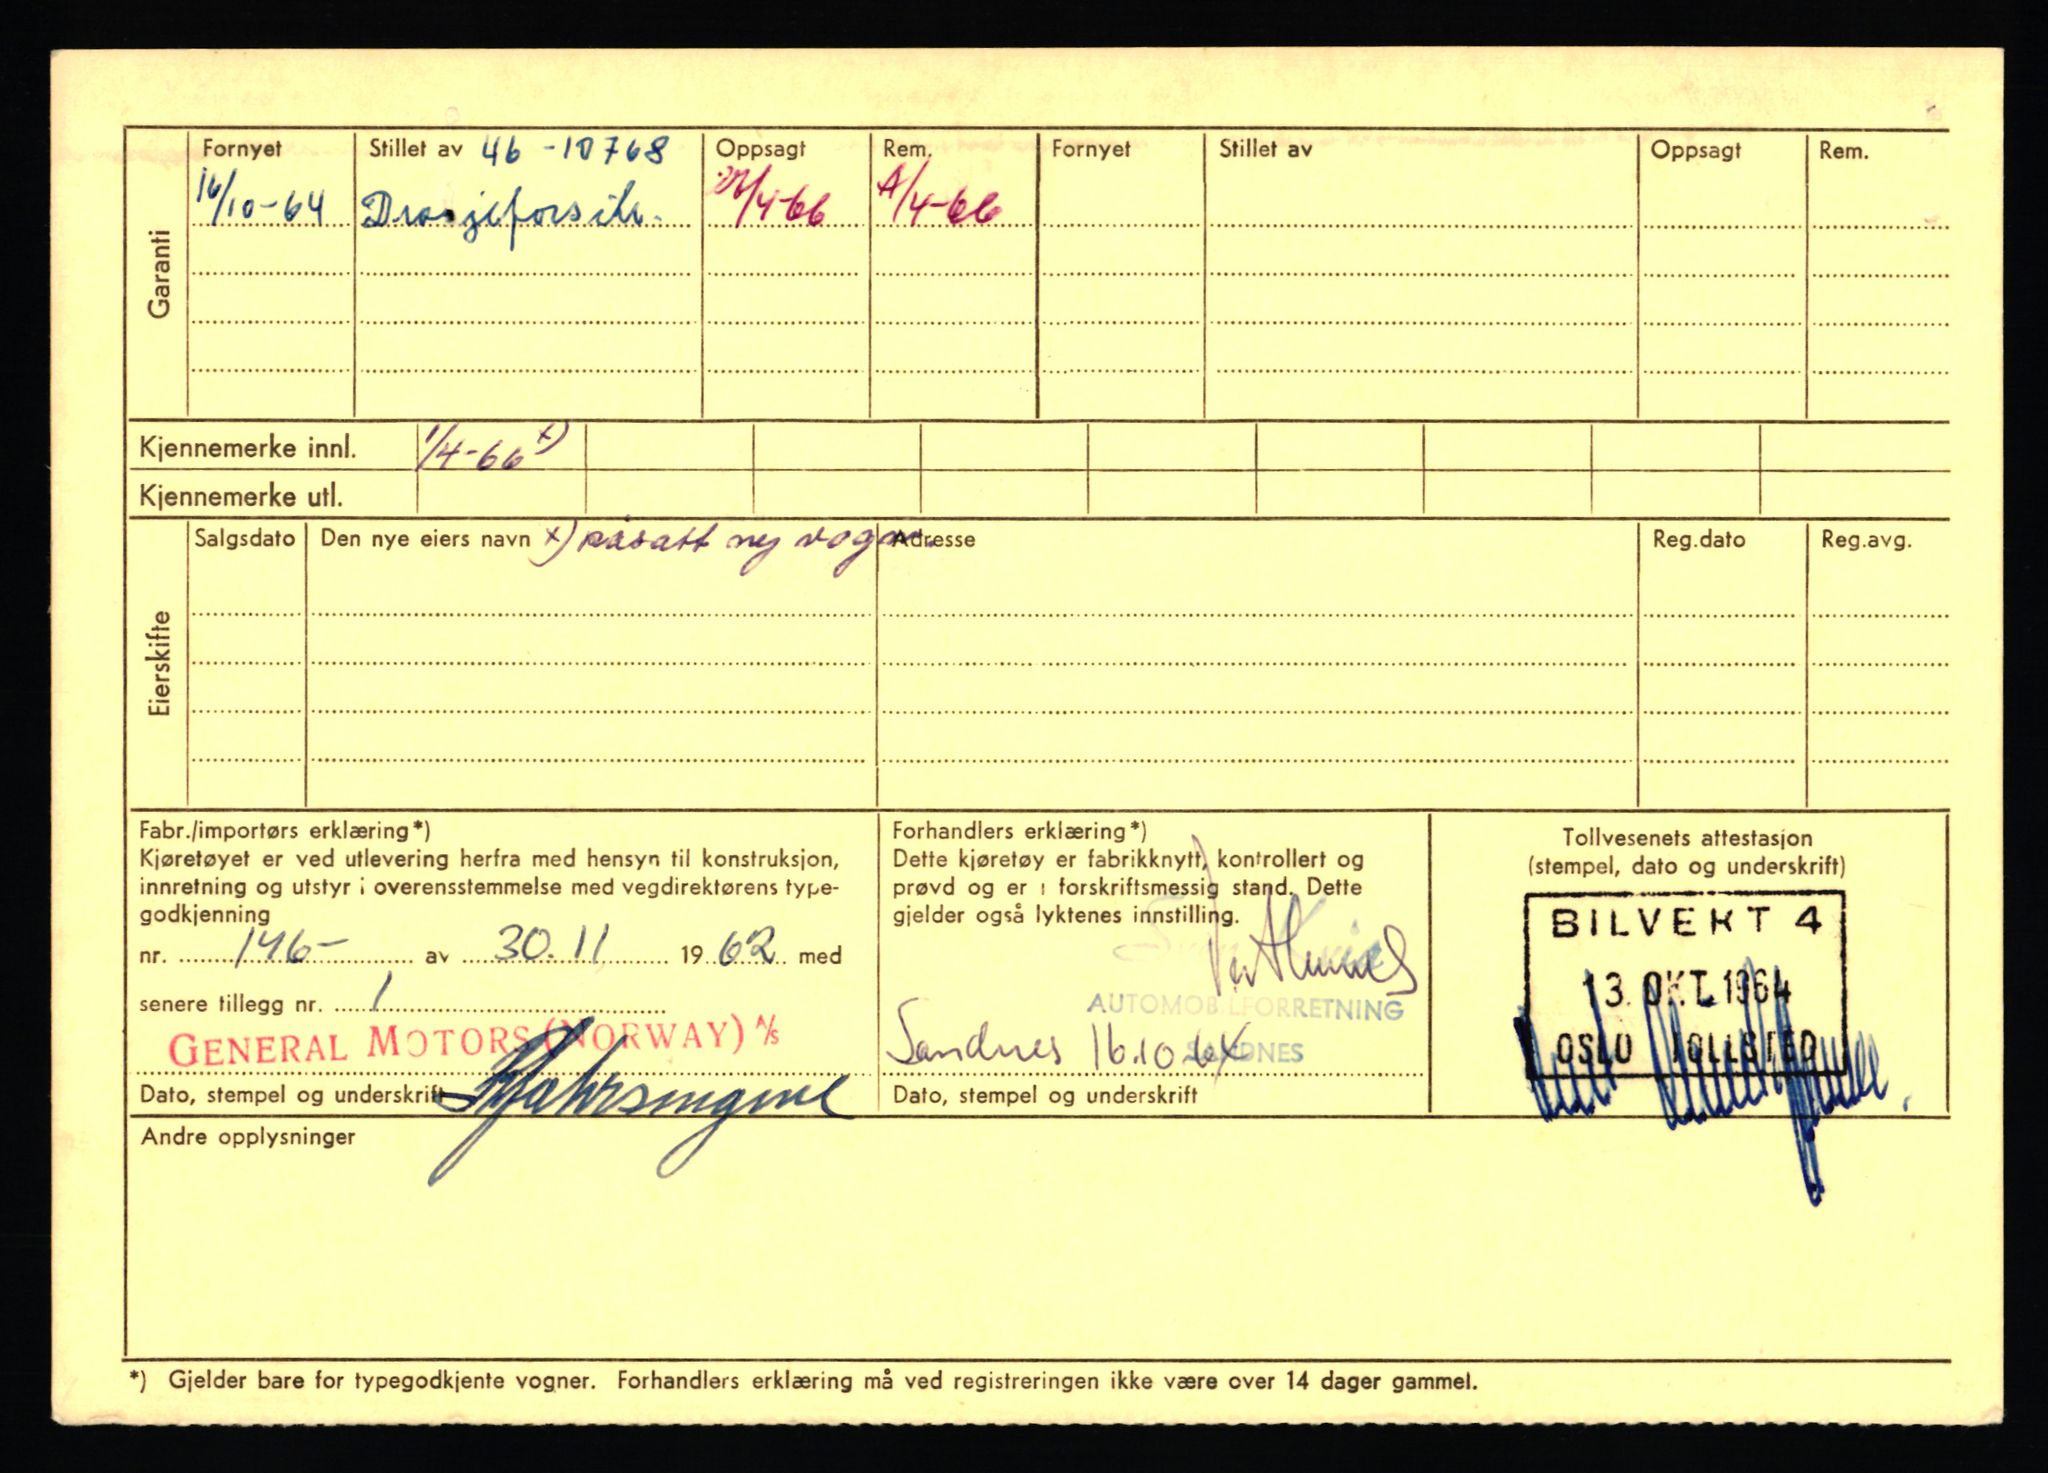 Fornyet Stillet av 46-10768 Oppsagt Rem. Fornyet Stillet av Oppsagt Rem.
16/10-64 Drosjeforsikr. /4-66 /4-66
Garanti
Kjennemerke innl. 1/4-66 x)
Kjennemerke utl.
Salgsdato Den nye eiers navn x) påsatt ny vogn. Adresse Reg.dato Reg.avg.
Eierskifte
Fabr./importørs erklæring*)
Kjøretøyet er ved utlevering herfra med hensyn til konstruksjon,
innretning og utstyr i overensstemmelse med vegdirektørens type-
godkjenning
nr. 146- av 30.11 1962 med
senere tillegg nr. 1
GENERAL MOTORS (NORWAY) A/S
Dato, stempel og underskrift
Forhandlers erklæring*)
Dette kjøretøy er fabrikknytt, kontrollert og
prøvd og er i forskriftsmessig stand. Dette
gjelder også lyktenes innstilling.
AUTOMOBILFORRETNING
SANDNES
Sandnes 16.10.64
Dato, stempel og underskrift
Tollvesenets attestasjon
(stempel, dato og underskrift)
BILVEKT 4
13. OKT. 1964
OSLO TOLLSTED
Andre opplysninger
*) Gjelder bare for typegodkjente vogner. Forhandlers erklæring må ved registreringen ikke være over 14 dager gammel.